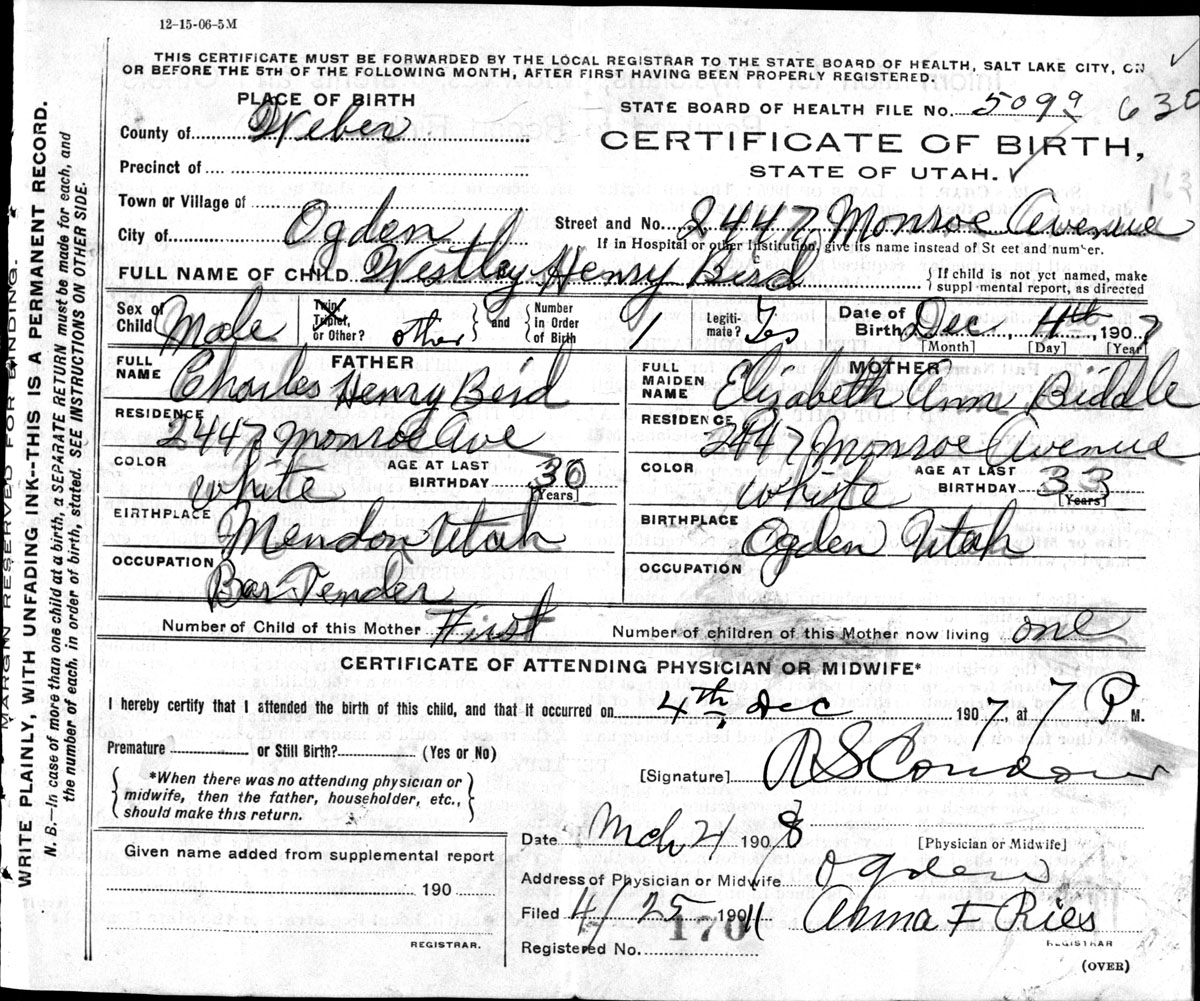 12-15-06-5M
THIS CERTIFICATE MUST BE FORWARDED BY THE LOCAL REGISTRAR TO THE STATE BOARD OF HEALTH, SALT LAKE CITY, ON
OR BEFORE THE 5TH OF THE FOLLOWING MONTH, AFTER FIRST HAVING BEEN PROPERLY REGISTERED.
PLACE OF BIRTH
STATE BOARD OF HEALTH FILE No. 5099 630
County of Weber
CERTIFICATE OF BIRTH,
STATE OF UTAH.
163
Precinct of
Town or Village of
City of Ogden
Street and No. 2447 Monroe Avenue
If in Hospital or other Institution, give its name instead of St eet and num er.
FULL NAME OF CHILD Westley Henry Bird
{If child is not yet named, make
suppl mental report, as directed
Sex of Child Male
Twin, Triplet, or Other? other
and Number in Order of Birth 1
Legiti-mate? Yes
Date of Birth Dec. 4th, 1907
[Month] [Day] [Year]
FATHER
FULL NAME Charles Henry Bird
RESIDENCE 2447 Monroe Ave
COLOR White
AGE AT LAST BIRTHDAY 30 [Years]
BIRTHPLACE Mendon Utah
OCCUPATION Bar Tender
MOTHER
FULL MAIDEN NAME Elizabeth Ann Biddle
RESIDENCE 2447 Monroe Avenue
COLOR White
AGE AT LAST BIRTHDAY 33 [Years]
BIRTHPLACE Ogden Utah
OCCUPATION
Number of Child of this Mother First
Number of children of this Mother now living one
CERTIFICATE OF ATTENDING PHYSICIAN OR MIDWIFE*
I hereby certify that I attended the birth of this child, and that it occurred on 4th Dec 1907, at 7 P M.
Premature or Still Birth? (Yes or No)
[Signature] R S Condon
{*When there was no attending physician or
midwife, then the father, householder, etc.,
should make this return.}
Date Mch 21 1908
[Physician or Midwife]
Given name added from supplemental report
190
REGISTRAR.
Address of Physician or Midwife Ogden
Filed 4/25 1911 Anna F Ries
REGISTRAR
Registered No. 170
(OVER)
MARGIN RESERVED FOR BINDING.
WRITE PLAINLY, WITH UNFADING INK--THIS IS A PERMANENT RECORD.
N. B.—In case of more than one child at a birth, a SEPARATE RETURN must be made for each, and
the number of each, in order of birth, stated. SEE INSTRUCTIONS ON OTHER SIDE.